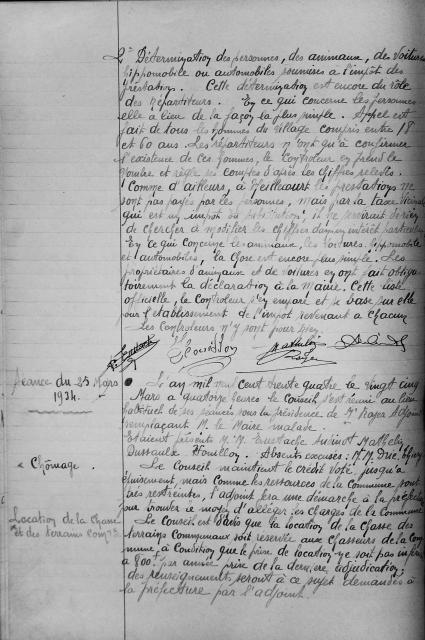 2° Détermination des personnes, des animaux, des voitures
hippomobile ou automobiles soumises à l'impôt des
prestation. Cette détermination est encore du rôle
des répartiteurs. En ce qui concerne les personnes
elle a lieu de la façon la plus simple. Appel est
fait de tous les hommes du village compris entre 18
et 60 ans. Les répartiteurs n'ont qu'à confirmer
l'existence de ces hommes, le Contrôleur en prend le
nombre et règle ses comptes d'après les chiffres relevés.
Comme d'ailleurs, à les prestations ne
sont pas payés par les personnes, mais par la taxe
qui est un impôt il ne servirait de rien
de chercher à modifier les chiffres dans un intérêt particulier
En ce qui concerne les animaux, les voitures hippomobile
et automobiles, la chose est encore plus simple. Les
propriétaires d'animaux et de voitures en ont fait obliga-
toirement la déclaration à la Mairie. Cette liste
officielle, le Contrôleur s'en empare et se base sur elle
pour l'établissement de l'impôt revenant à chacun
Les Contrôleurs n'y sont pour rien.
Séance du 25 Mars
1934.
L'an mil neuf cent trente quatre le vingt cinq
Mars à quatorze heures le Conseil s'est réuni au lieu
habituel de ses séances sous la présidence de Mr Roger Adjoint
remplaçant M. le Maire malade.
Etaient présents M.M. Eustache Mathelin
Dussaulx Houillon. Absents excusés: M.M.
Chômage.
Le Conseil maintient le crédit voté, jusqu'à
épuisement, mais comme les ressources de la Commune sont
très restreintes, l'adjoint fera une démarche à la préfecture
pour trouver le moyen d'alléger les charges de la Commune
Location de la Chasse
et des terrains Comx
Le Conseil est d'avis que la location de la chasse des
terrains Communaux soit réservée aux chasseurs de la Com-
mune à condition que le prix de location ne soit pas inférieur
à 800f par année prix de la dernière adjudication;
des renseignements seront à ce sujet demandés à
la préfecture par l'adjoint.